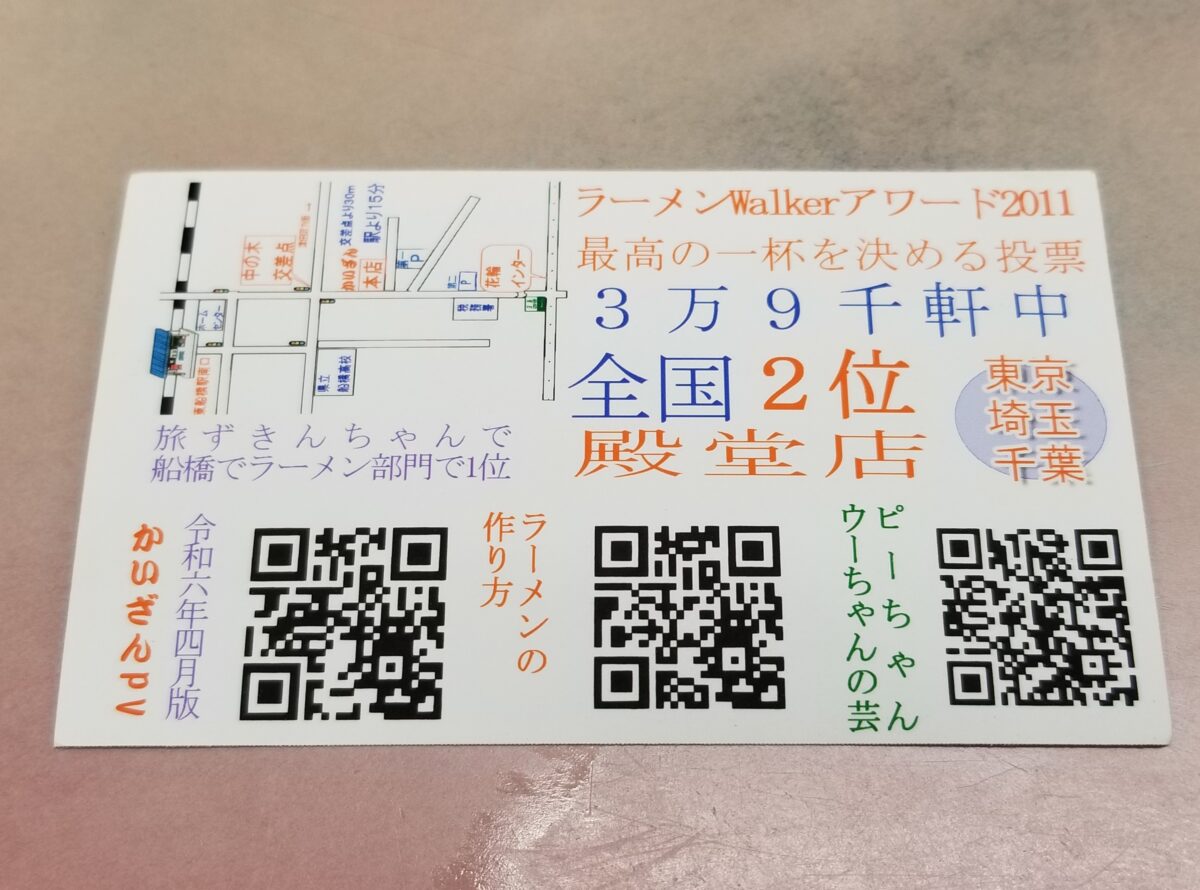 ラーメンWalkerアワード2011
最高の一杯を決める投票
3万9千軒中
全国2位
殿堂店
東京
埼玉
千葉
中の木
交差点
かいざん
本店
交差点より30m
駅より15分
第一
P
第二
P
花輪
インター
ホーム
センター
東船橋駅南口
県立
船橋高校
旅ずきんちゃんで
船橋でラーメン部門で1位
かいざんPV
令和六年四月版
ラーメンの
作り方
ピーちゃん
ウーちゃんの芸